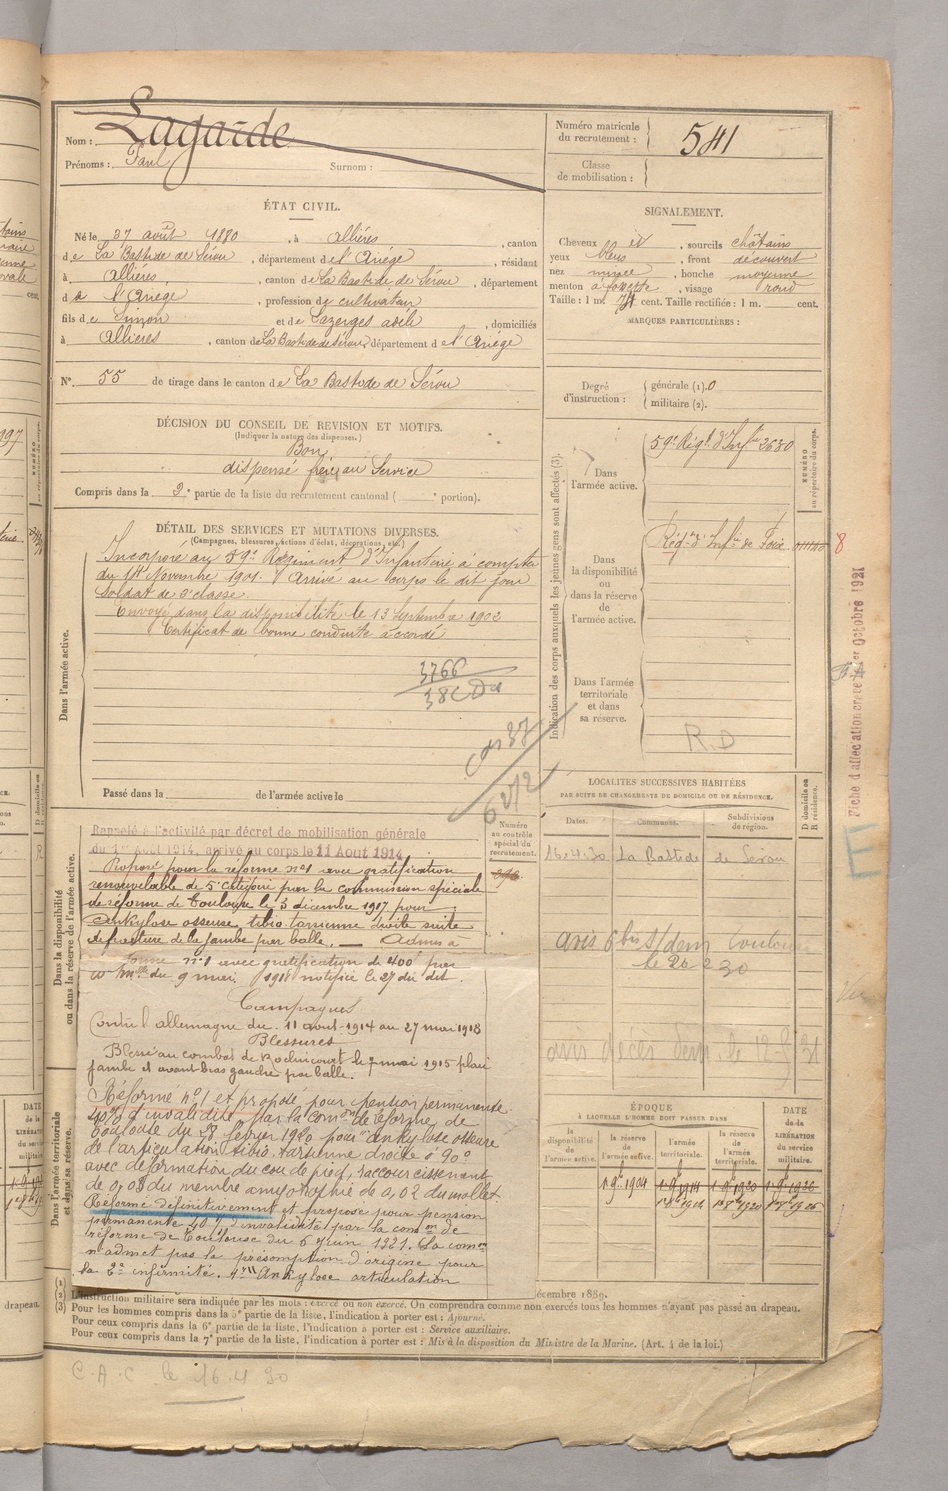 Nom : Lagarde
Prénoms : Paul Surnom :
Numéro matricule du recrutement : 541
Classe de mobilisation :
ÉTAT CIVIL.
Né le août 1880, à Allières, canton
de La Bastide de Sérou, département de l'Ariège, résidant
à Allières, canton de La Bastide de Sérou, département
d l'Ariège, profession de cultivateur
fils de Simon et de Lazerges adèle, domiciliés
à Allières, canton de La Bastide de Sérou, département de l'Ariège
N° 55 de tirage dans le canton de La Bastide de Sérou
SIGNALEMENT.
Cheveux et, sourcils châtains
yeux bleus, front découvert
nez, bouche moyenne
menton à fossette, visage rond
Taille : 1 m. cent. Taille rectifiée : 1 m. cent.
MARQUES PARTICULIÈRES :
Degré d'instruction : générale (1). 0
militaire (2).
DÉCISION DU CONSEIL DE REVISION ET MOTIFS.
(Indiquer la nature des dispenses.)
Bon
dispensé frère au Service
Compris dans la 2e partie de la liste du recrutement cantonal ( e portion).
DÉTAIL DES SERVICES ET MUTATIONS DIVERSES.
(Campagnes, blessures, actions d'éclat, décorations, etc.)
Dans l'armée active.
Incorporé au 59e Régiment d'Infanterie à compter
du Novembre 1901. Arrivé au corps le dit jour
Soldat de 2e classe
Envoyé dans la disponibilité le 13 Septembre 1902
Certificat de bonne conduite accordé
3766
Passé dans la de l'armée active le
Indication des corps auxquels les jeunes gens sont affectés (3).
Dans l'armée active.
59e Régt. d'Infie 2680
NUMÉRO au répertoire du corps.
Dans la disponibilité ou dans la réserve de l'armée active.
Régt d'Infie de Foix
8
Dans l'armée territoriale et dans sa réserve.
R.D
Fiche d'affectation créée le 1er Octobre 1921
LOCALITÉS SUCCESSIVES HABITÉES
PAR SUITE DE CHANGEMENTS DE DOMICILE OU DE RÉSIDENCE.
Dates. Communes. Subdivisions de région. D domicile ou R résidence.
16.4.30 La Bastide de Sérou
Dans la disponibilité ou dans la réserve de l'armée active.
Numéro au contrôle spécial du recrutement.
Rappelé à l'activité par décret de mobilisation générale
du 1er Août 1914, arrivé au corps le 11 Août 1914
Proposé pour la réforme n°1 avec gratification
renouvelable de 5e catégorie par la commission spéciale
de réforme de Toulouse le 3 décembre 1917 pour
ankylose osseuse tibio tarsienne droite suite
de fracture de la jambe par balle. — Admis à
réforme n°1 avec gratification de 400f par
du 9 mai 1918 notifiée le 27 du dit.
Campagnes
Contre l'allemagne du 11 août 1914 au 27 mai 1918
Blessures
Blessé au combat de Roclincourt le mai 1915 plaie
jambe et avant-bras gauche par balle.
Dans l'armée territoriale et dans sa réserve.
Réformé n°1 et proposé pour pension permanente
40% d'invalidité par la comon de réforme de
Toulouse du février 1920 pour ankylose osseuse
de l'articulation tibio tarsienne droite à 90°
avec déformation du cou de pied, raccourcissement
de 0,03 du membre amyotrophie de 0,02 du mollet.
Réformé définitivement et proposé pour pension
permanente 40% d'invalidité par la comon de
réforme de Toulouse du 6 juin 1921. La comon
n'admet pas la présomption d'origine pour
la 2e infirmité. Ankylose articulation
avis 6 bis s/dem Toulouse
le 26 2 30
avis décès dem. le 12 31
ÉPOQUE
À LAQUELLE L'HOMME DOIT PASSER DANS
la disponibilité de l'armée active. la réserve de l'armée active. l'armée territoriale. la réserve de l'armée territoriale.
DATE de la LIBÉRATION du service militaire.
1 9bre 1904
L'instruction militaire sera indiquée par les mots : exercé ou non exercé. On comprendra comme non exercés tous les hommes n'ayant pas passé au drapeau.
décembre 1889.
Pour les hommes compris dans la 5e partie de la liste, l'indication à porter est : Ajourné.
Pour ceux compris dans la 6e partie de la liste, l'indication à porter est : Service auxiliaire.
Pour ceux compris dans la 7e partie de la liste, l'indication à porter est : Mis à la disposition du Ministre de la Marine. (Art. 4 de la loi.)
C.A.C le 16.4.30